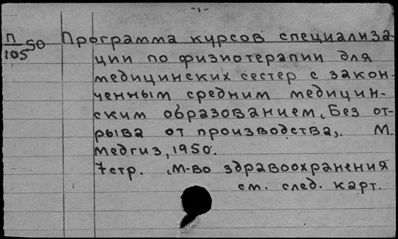 -1-
П 50 Программа курсов специализа-
105 ции по физиотерапии для
медицинских сестер с закон-
ченным средним медицин-
ским образованием. Без от-
рыва от производства. М.
Медгиз, 1950.
7стр. М-во здравоохранения
см. след. карт.